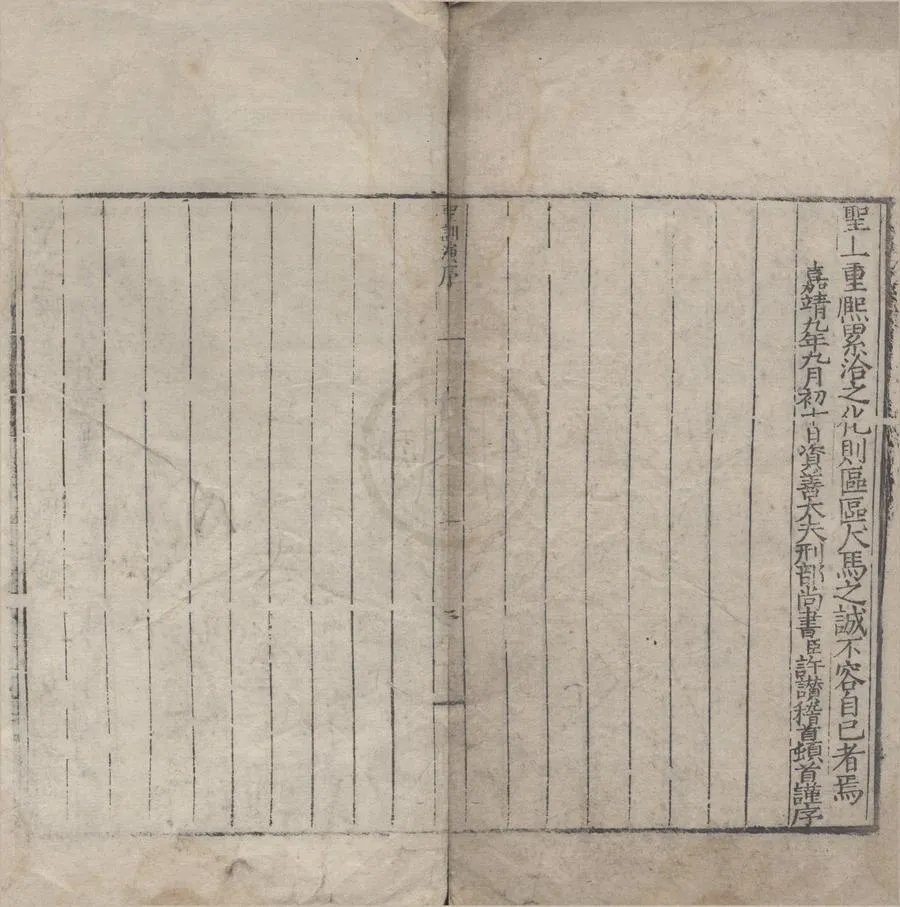 聖上重熈累洽之化則區區犬馬之誠不容自已者焉
嘉靖九年九月初十日資善大夫刑部尚書臣許讃稽首頓首謹序
訓演序